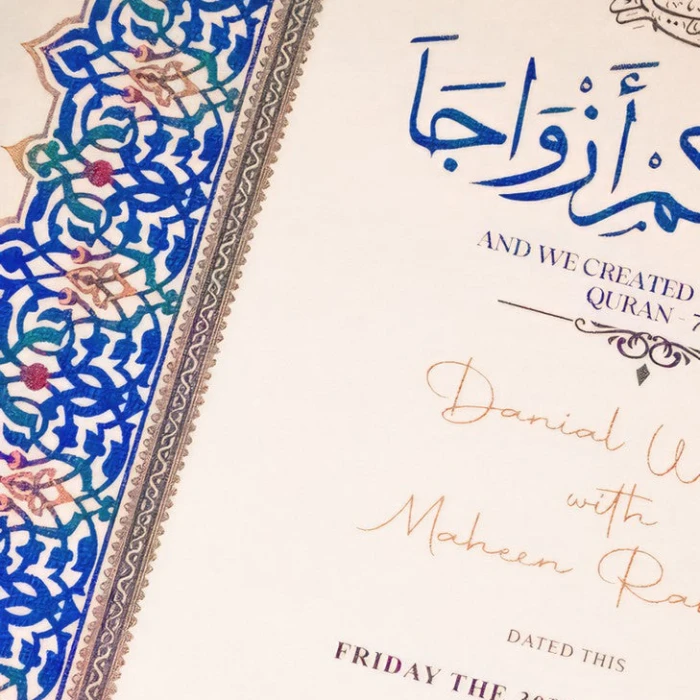 أَزْوَاجًا
AND WE CREATED
QURAN - 7
Danial W
with
Maheen Ra
DATED THIS
FRIDAY THE